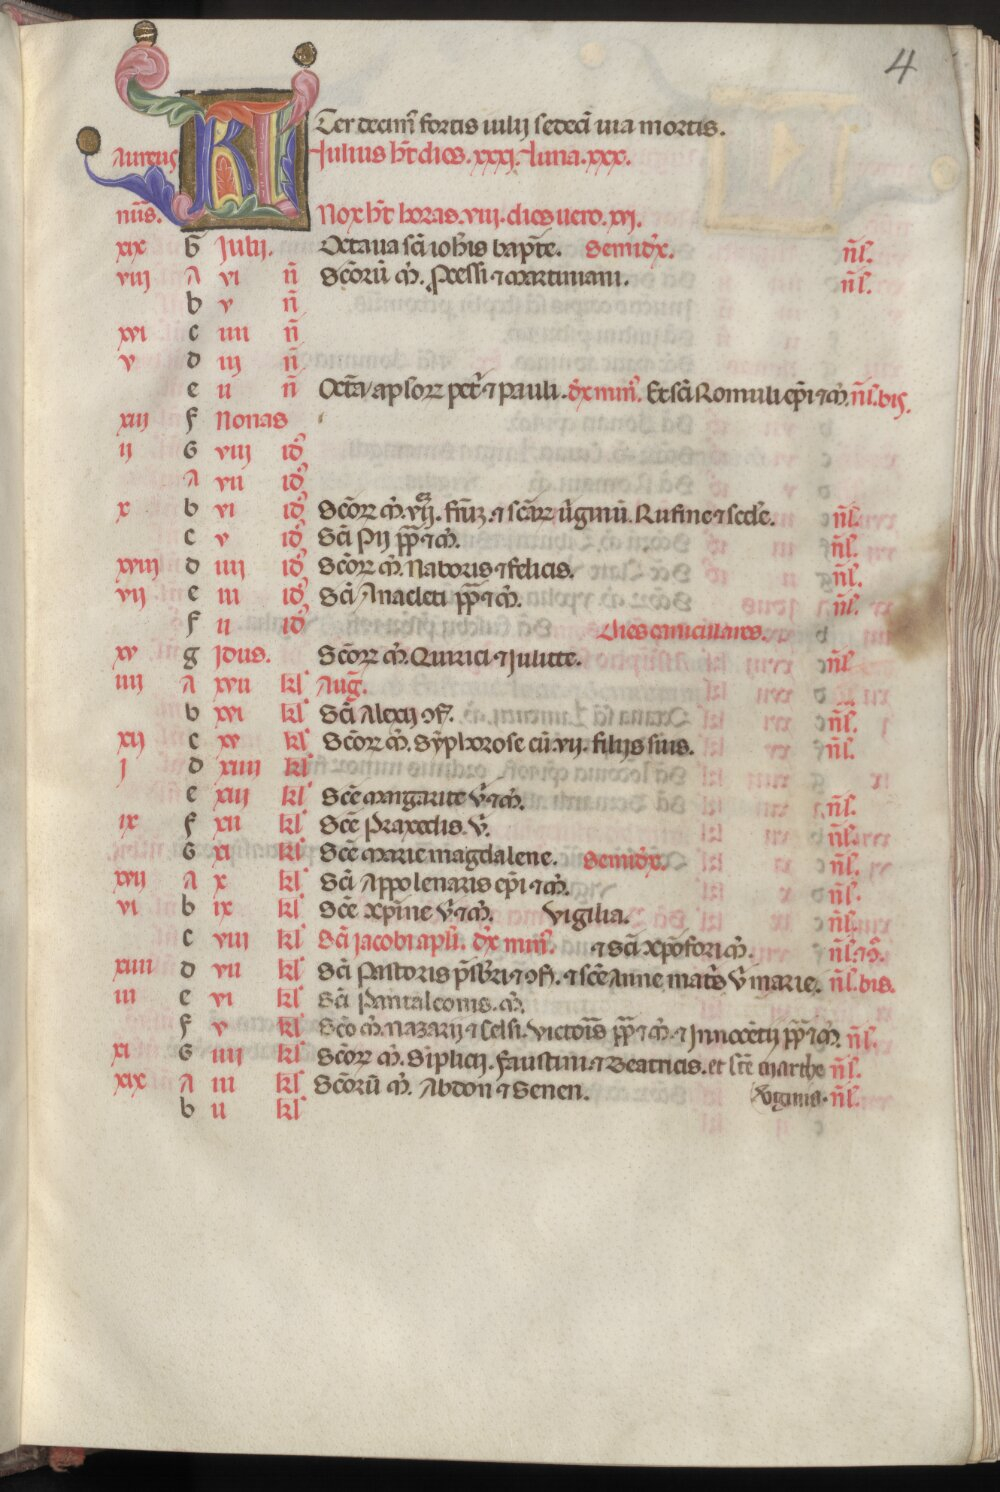 4
KL Ter decim̄ fortis iulij sedecī uia mortis.
Aureus Julius hr̄t dies. xxxj. luna. xxx.
nūs. Nox hr̄t horas. viii. dies uero. xvj.
xix G Julij. Octaua sc̄i ioh̄is bapt̄e. Semidx̄. ñl.
viii A vi ñ Sc̄orū m̄. Processi ⁊ martiniani. ñl.
b v ñ
xvi c iiii ñ
v d iii ñ
e ii ñ Octā apl̄orꝝ pet̄ ⁊ pauli. dx̄ min̄. Et sc̄i Romuli ep̄i ⁊ m̄. ñl. bis.
xiii f Nonas
ii G viii id̄
A vii id̄
x b vi id̄ Sc̄orꝝ m̄. vij. fr̄uꝫ. ⁊ sc̄arꝝ v̄ginū. Rufine ⁊ sēde. ñl.
c v id̄ Sc̄i Pij pp̄ ⁊ m̄. ñl.
xviii d iiii id̄ Sc̄orꝝ m̄. Naboris ⁊ felicis. ñl.
vii e iii id̄ Sc̄i Anacleti pp̄ ⁊ m̄. ñl.
f ii id̄ Dies caniculares.
xv g Jdus. Sc̄orꝝ m̄. Quirici ⁊ Julitte. ñl
iiii A xvii kl̄ Auḡ.
b xvi kl̄ Sc̄i Alexij ɔf̄. ñl.
xii c xv kl̄ Sc̄orꝝ m̄. Sȳphorose cū. vii. filijs suis. ñl.
j d xiiii kl̄
e xiii kl̄ Sc̄e margarite v̄ ⁊ m̄. ñl.
ix f xii kl̄ Sc̄e Praxedis. v̄. ñl.
G xi kl̄ Sc̄e marie magdalene. Semidx̄. ñl.
xvii A x kl̄ Sc̄i Appolenaris ep̄i ⁊ m̄. ñl.
vi b ix kl̄ Sc̄e xp̄ine v̄ ⁊ m̄. Vigilia. ñl.
c viii kl̄ Sc̄i Jacobi apl̄i. dx̄ min̄. ⁊ Sc̄i xp̄ofori m̄. ñl. ⁊ 9̄.
xiiii d vii kl̄ Sc̄i Pastoris p̄sb̄ri ⁊ ɔf̄. ⁊ sc̄e Anne mat̄s v̄ marie. ñl. bis.
iii e vi kl̄ Sc̄i Pantaleonis. m̄.
f v kl̄ Sc̄o m̄. Nazarij ⁊ Celsi. Victoris pp̄ ⁊ m̄. ⁊ Innocētij pp̄ ⁊ m̄. ñl.
xi G iiii kl̄ Sc̄orꝝ m̄. Siplicij. Faustini ⁊ Beatricis. et sc̄e marthe ñl.
xix A iii kl̄ Sc̄orū m̄. Abdon ⁊ Senen. virginis. ñl.
b ii kl̄